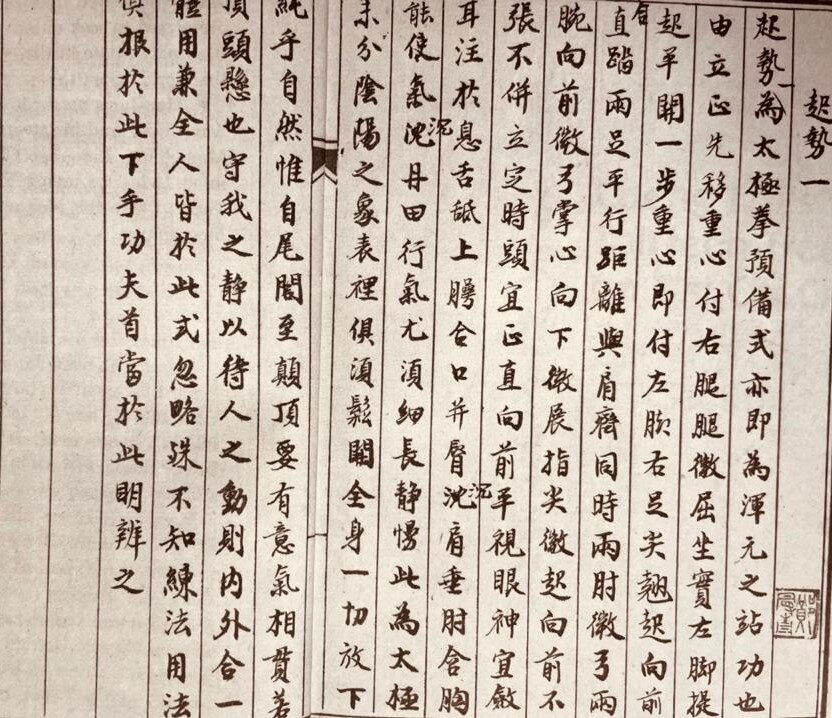 起勢一
起勢為太極拳預備式亦即為渾元之站功也
由立正先移重心付右腿腿微屈坐實左脚提
起平開一步重心即付左脚右足尖翹起向前
直踏兩足平行距離與肩齊同時兩肘微弓兩
腕向前微弓掌心向下微展指尖微起向前不
張不併立定時頭宜正直向前平視眼神宜斂
耳注於息舌舐上腭合口并唇沈沉肩垂肘含胸
能使氣沈沉丹田行氣尤須細長静慢此為太極
未分陰陽之象表裡俱須鬆開全身一切放下
純乎自然惟自尾閭至顛頂要有意氣相貫若
頂頭懸也守我之静以待人之動則内外合一
體用兼全人皆於此式忽略殊不知練法用法
俱根於此下手功夫首當於此明辨之